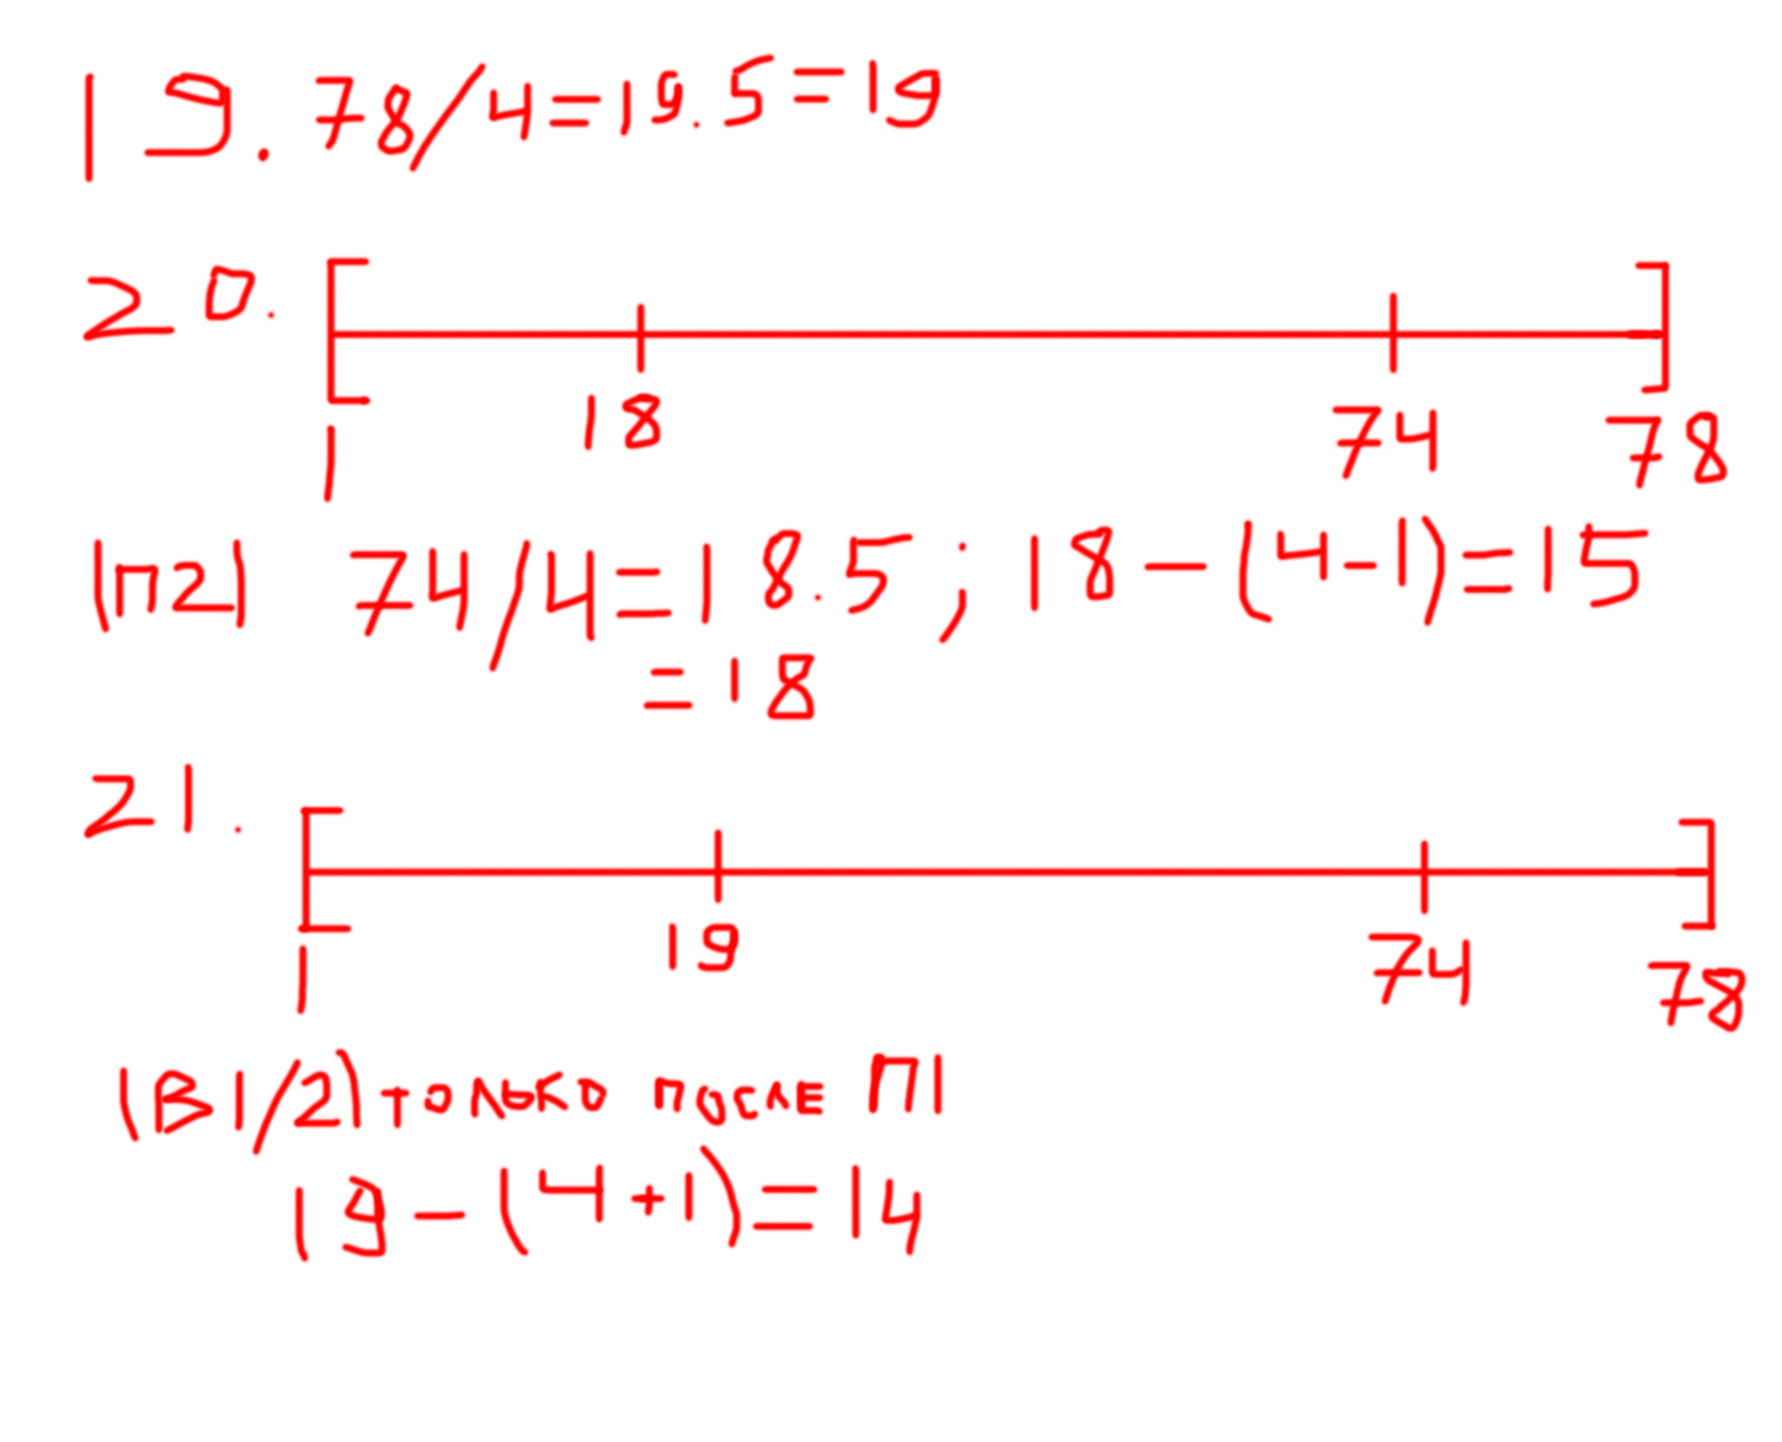 19. 78/4=19.5=19
20.
1 18 74 78
(П2) 74/4=18.5; 18-(4-1)=15
=18
21.
1 19 74 78
(В1/2) только после П1
19-(4+1)=14